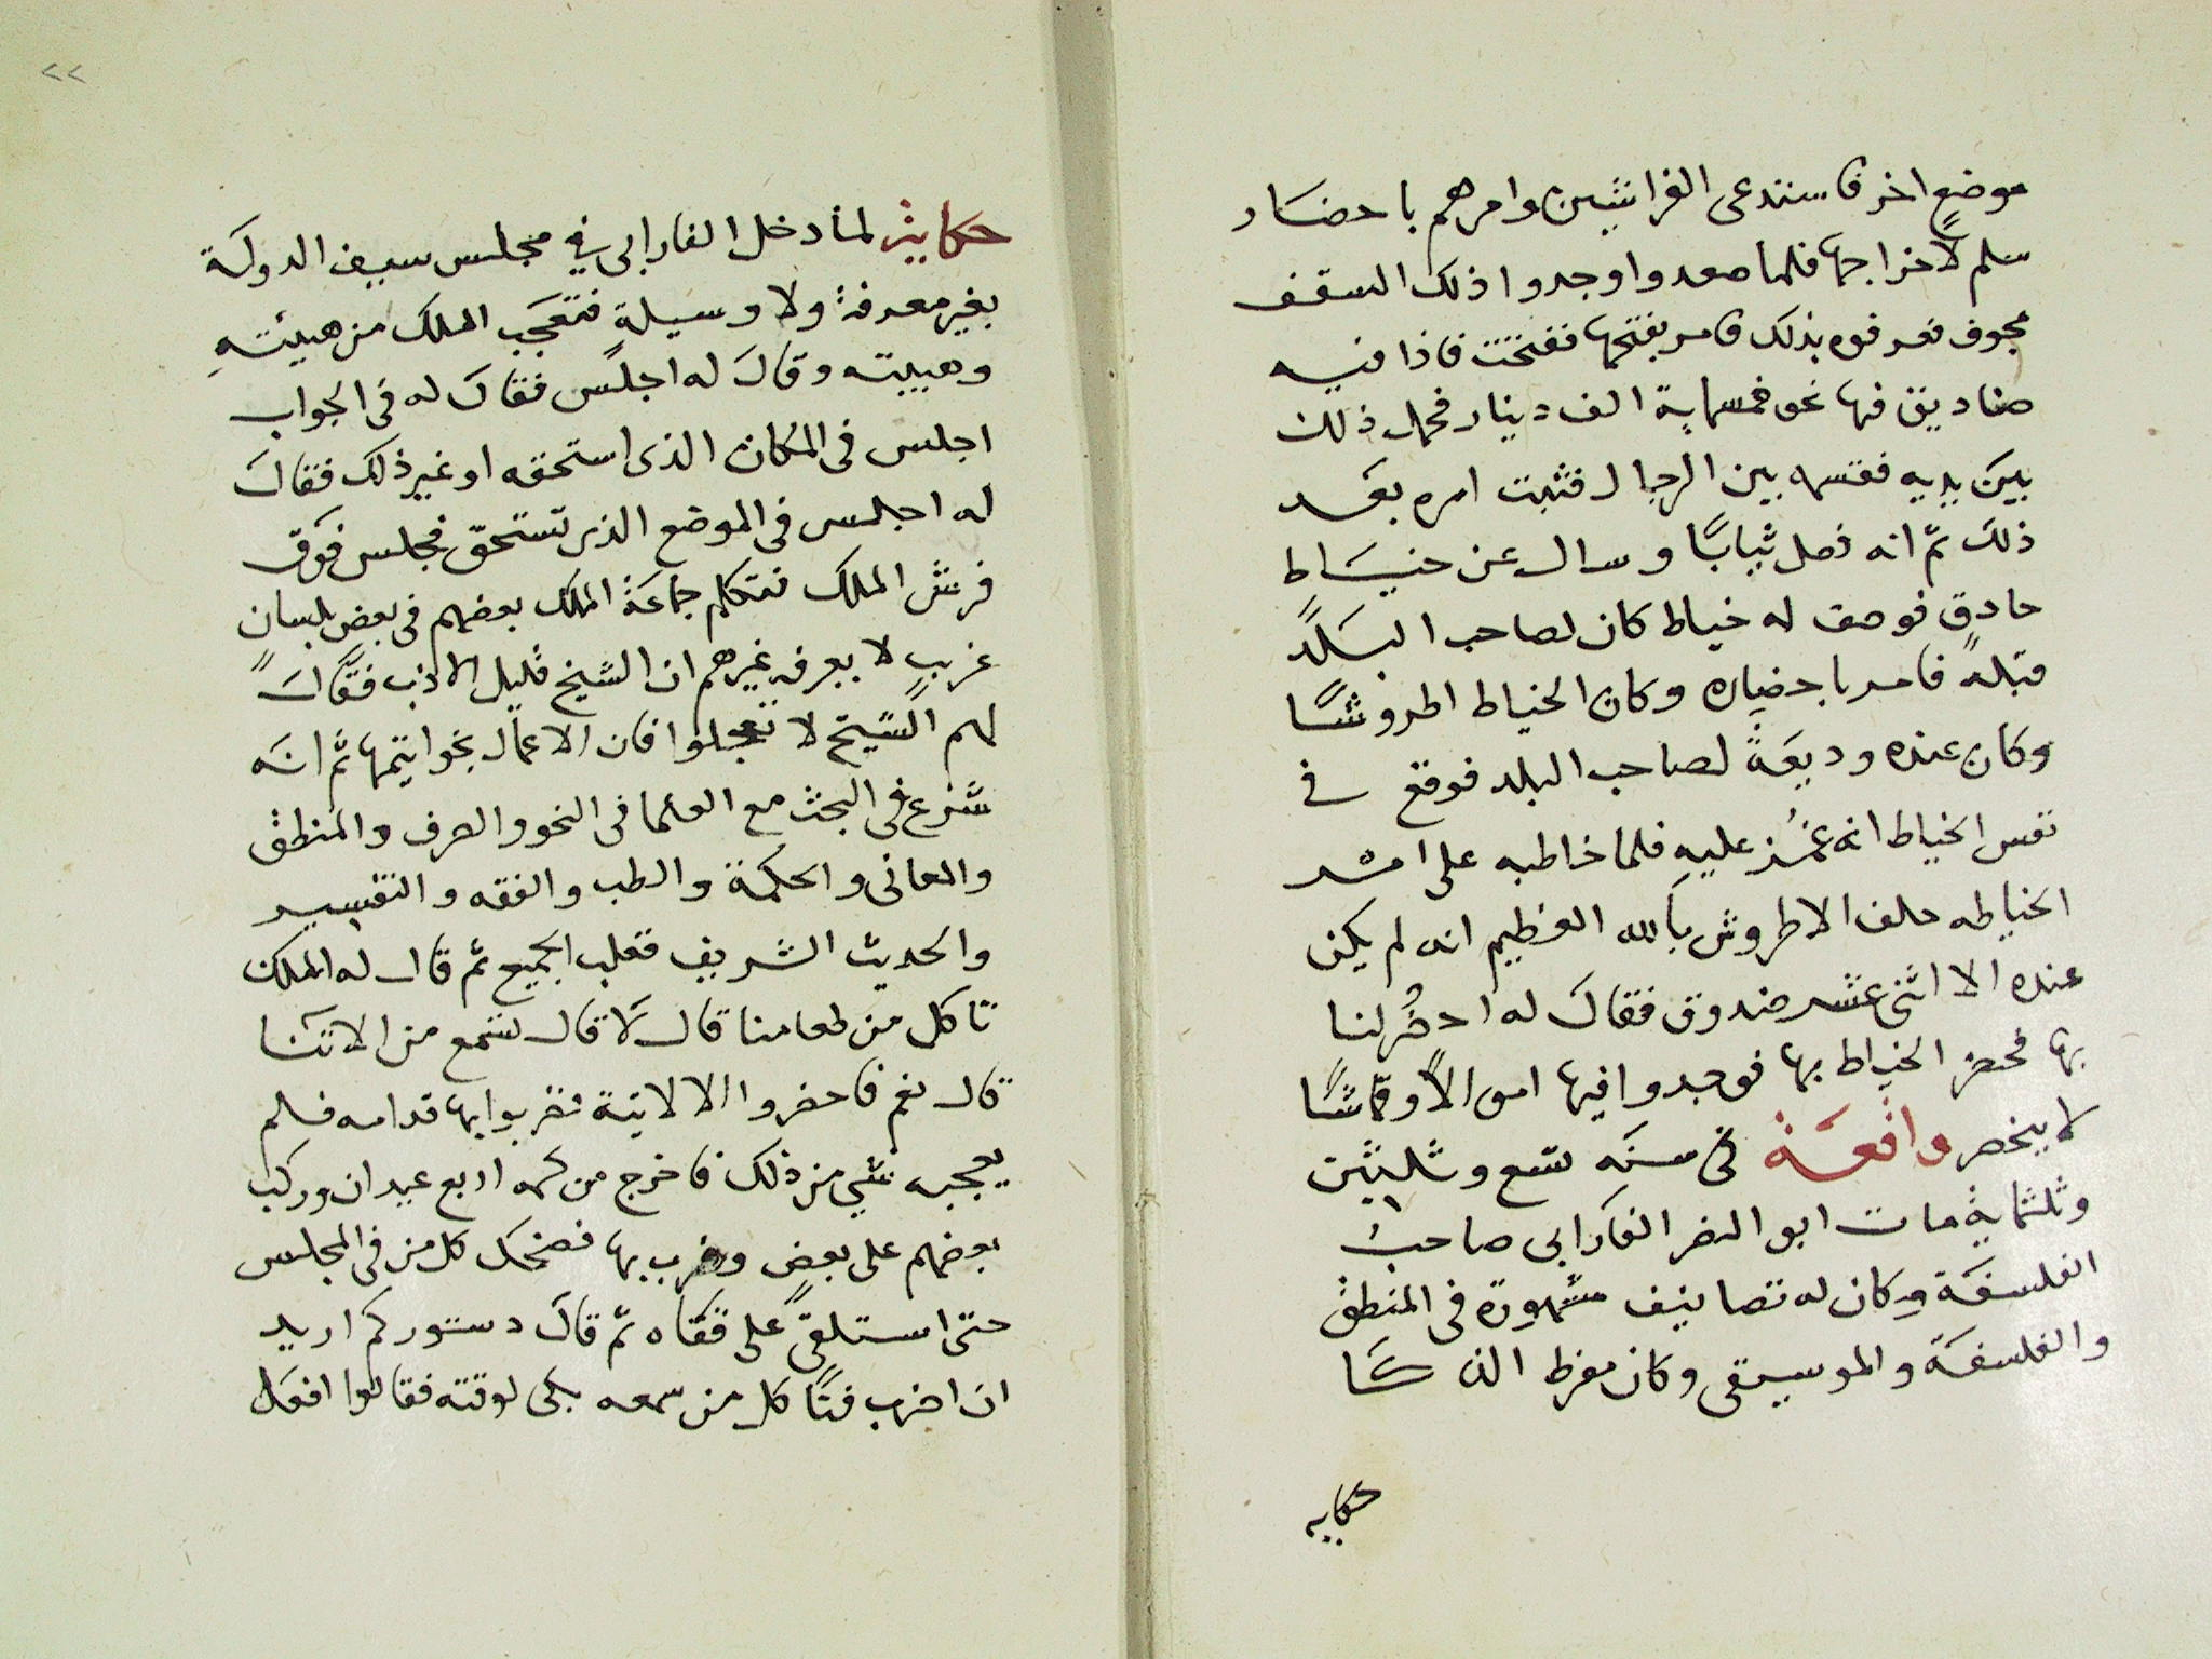 موضع اخر فاستدعى الفراشين وامرهم باحضار
سلم لاخراجها فلما صعدوا وجدوا ذلك السقف
مجوف فعرفوه بذلك فامر بفتحها ففتحت فاذا فيه
صناديق فيها نحو خمسماية الف دينار فحمل ذلك
بين يديه فقسمه بين الرجال فثبت امره بعد
ذلك ثم انه فصل ثيابًا وسال عن خياط
حادق فوصف له خياط كان لصاحب البلد
قبله فامر باحضاره وكان الخياط اطروشًا
وكان عنده وديعة لصاحب البلد فوقع في
نفس الخياط انه غمز عليه فلما خاطبه على امر
الخياطه حلف الاطروش بالله العظيم انه لم يكن
عنده الا اثنى عشر صندوق فقال له احضر لنا
بها فحضر الخياط بها فوجدوا فيها اموالًا وقماشًا
لا ينحصر واقعة فى سنه تسع وثلثين
وثلثماية مات ابو النصر الفارابى صاحب
الفلسفة وكان له تصانيف مشهورة فى المنطق
والفلسفة والموسيقى وكان مفرط الذكا
حكايه
٢٢
حكاية لما دخل الفارابى في مجلس سيف الدولة
بغير معرفة ولا وسيلة فتعجب الملك من هيئته
وهيبته وقال له اجلس فقال له فى الجواب
اجلس فى المكان الذى استحقه او غير ذلك فقال
له اجلس فى الموضع الذى تستحق فجلس فوق
فرش الملك فتكلم جماعة الملك بعضهم فى بعض بلسان
غريب لا يعرفه غيرهم ان الشيخ قليل الادب فقال
لهم الشيخ لا تعجلوا فان الاعمال بخواتيمها ثم انه
شرع فى البحث مع العلما فى النحو والصرف والمنطق
والمعانى والحكمة والطب والفقه والتفسير
والحديث الشريف فغلب الجميع ثم قال له الملك
تاكل من طعامنا قال لا قال تسمع من الاتنا
قال نعم فاحضروا الالاتية فضربوا بها قدامه فلم
يعجبه شي من ذلك فاخرج من كمه اربع عيدان وركب
بعضهم على بعض وضرب بها فضحك كل من فى المجلس
حتى استلقى على قفاه ثم قال دستوركم اريد
ان اضرب فنًا كل من سمعه بكى لوقته فقالوا افعل